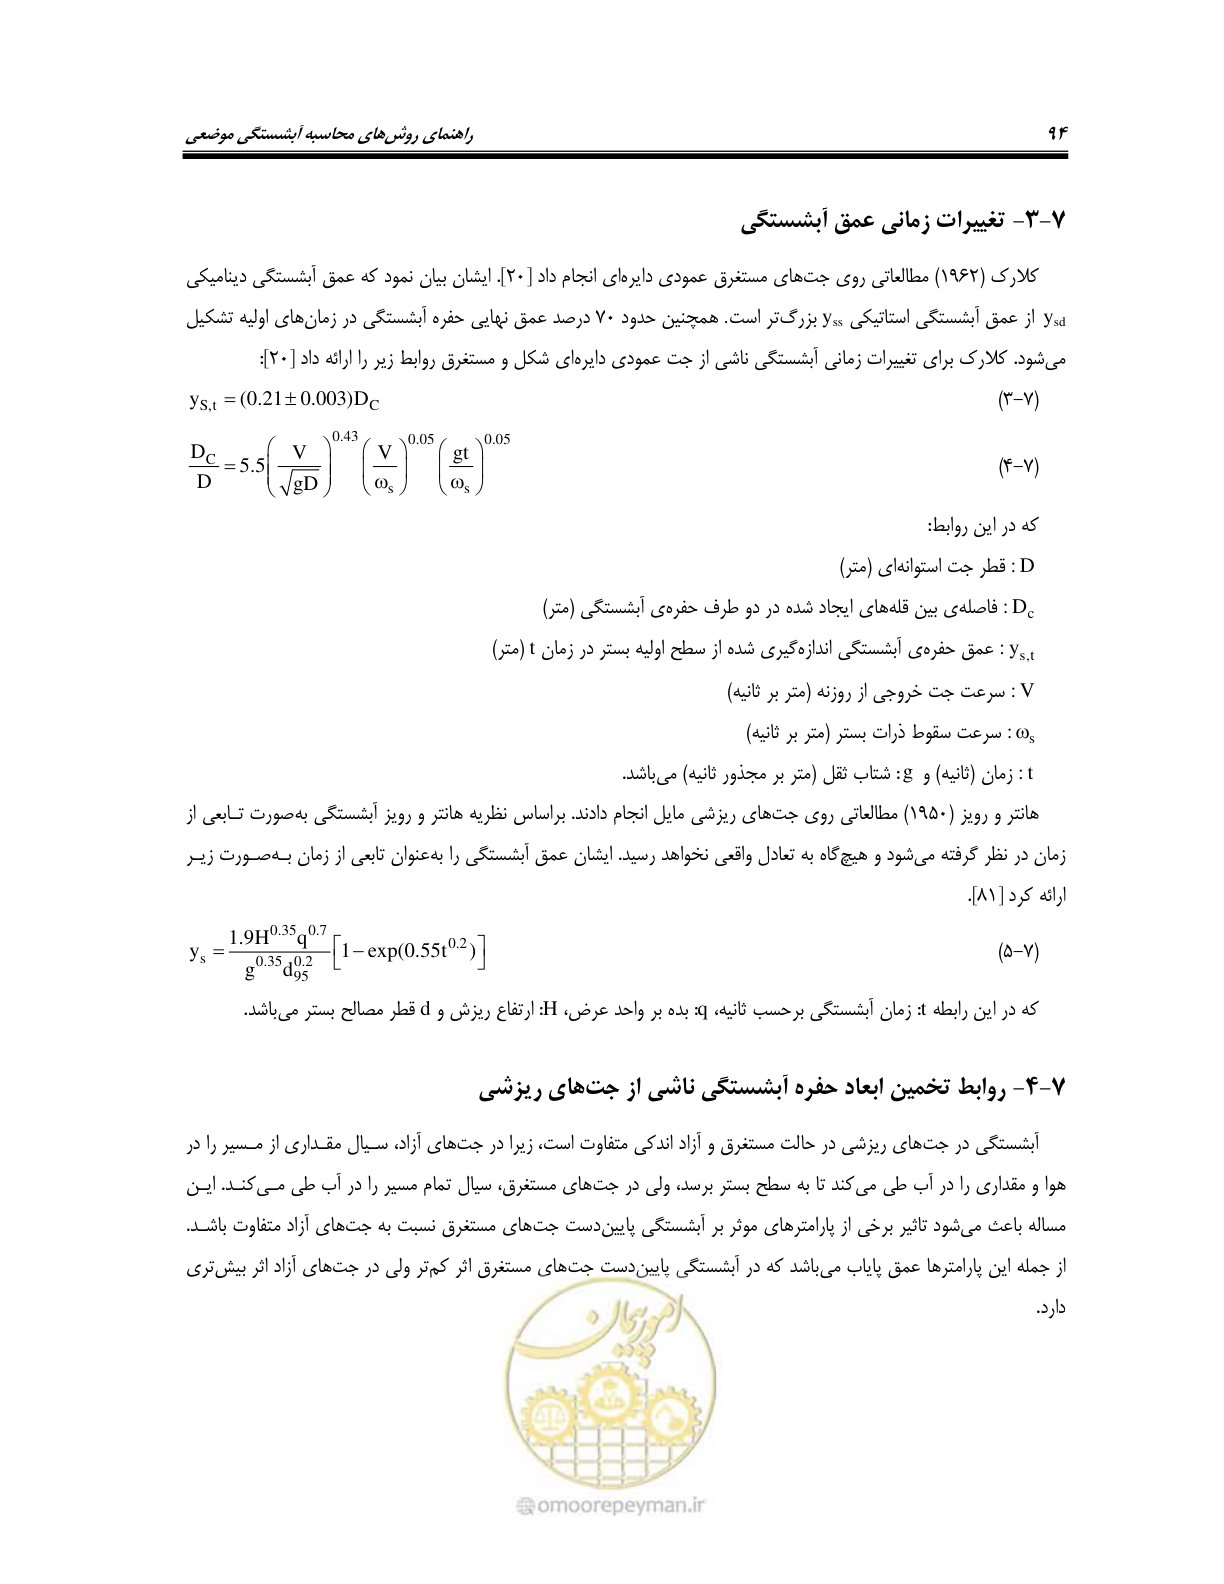 ۹۴ راهنمای روش‌های محاسبه آبشستگی موضعی
۷-۳- تغییرات زمانی عمق آبشستگی
کلارک (۱۹۶۲) مطالعاتی روی جت‌های مستغرق عمودی دایره‌ای انجام داد [۲۰]. ایشان بیان نمود که عمق آبشستگی دینامیکی
y_sd از عمق آبشستگی استاتیکی y_ss بزرگ‌تر است. همچنین حدود ۷۰ درصد عمق نهایی حفره آبشستگی در زمان‌های اولیه تشکیل
می‌شود. کلارک برای تغییرات زمانی آبشستگی ناشی از جت عمودی دایره‌ای شکل و مستغرق روابط زیر را ارائه داد [۲۰]:
y_{S,t} = (0.21 ± 0.003)D_C (۷-۳)
\frac{D_C}{D} = 5.5\left(\frac{V}{\sqrt{gD}}\right)^{0.43}\left(\frac{V}{ω_s}\right)^{0.05}\left(\frac{gt}{ω_s}\right)^{0.05} (۷-۴)
که در این روابط:
D : قطر جت استوانه‌ای (متر)
D_c : فاصله‌ی بین قله‌های ایجاد شده در دو طرف حفره‌ی آبشستگی (متر)
y_{s,t} : عمق حفره‌ی آبشستگی اندازه‌گیری شده از سطح اولیه بستر در زمان t (متر)
V : سرعت جت خروجی از روزنه (متر بر ثانیه)
ω_s : سرعت سقوط ذرات بستر (متر بر ثانیه)
t : زمان (ثانیه) و g : شتاب ثقل (متر بر مجذور ثانیه) می‌باشد.
هانتر و رویز (۱۹۵۰) مطالعاتی روی جت‌های ریزشی مایل انجام دادند. براساس نظریه هانتر و رویز آبشستگی به‌صورت تـابعی از
زمان در نظر گرفته می‌شود و هیچ‌گاه به تعادل واقعی نخواهد رسید. ایشان عمق آبشستگی را به‌عنوان تابعی از زمان بـه‌صـورت زیـر
ارائه کرد [۸۱].
y_s = \frac{1.9H^{0.35}q^{0.7}}{g^{0.35}d_{95}^{0.2}}\left[1 - exp(0.55t^{0.2})\right] (۷-۵)
که در این رابطه t: زمان آبشستگی برحسب ثانیه، q: بده بر واحد عرض، H: ارتفاع ریزش و d قطر مصالح بستر می‌باشد.
۷-۴- روابط تخمین ابعاد حفره آبشستگی ناشی از جت‌های ریزشی
آبشستگی در جت‌های ریزشی در حالت مستغرق و آزاد اندکی متفاوت است، زیرا در جت‌های آزاد، سـیال مقـداری از مـسیر را در
هوا و مقداری را در آب طی می‌کند تا به سطح بستر برسد، ولی در جت‌های مستغرق، سیال تمام مسیر را در آب طی مـی‌کنـد. ایـن
مساله باعث می‌شود تاثیر برخی از پارامترهای موثر بر آبشستگی پایین‌دست جت‌های مستغرق نسبت به جت‌های آزاد متفاوت باشـد.
از جمله این پارامترها عمق پایاب می‌باشد که در آبشستگی پایین‌دست جت‌های مستغرق اثر کم‌تر ولی در جت‌های آزاد اثر بیش‌تری
دارد.
امور پیمان
@omoorepeyman.ir